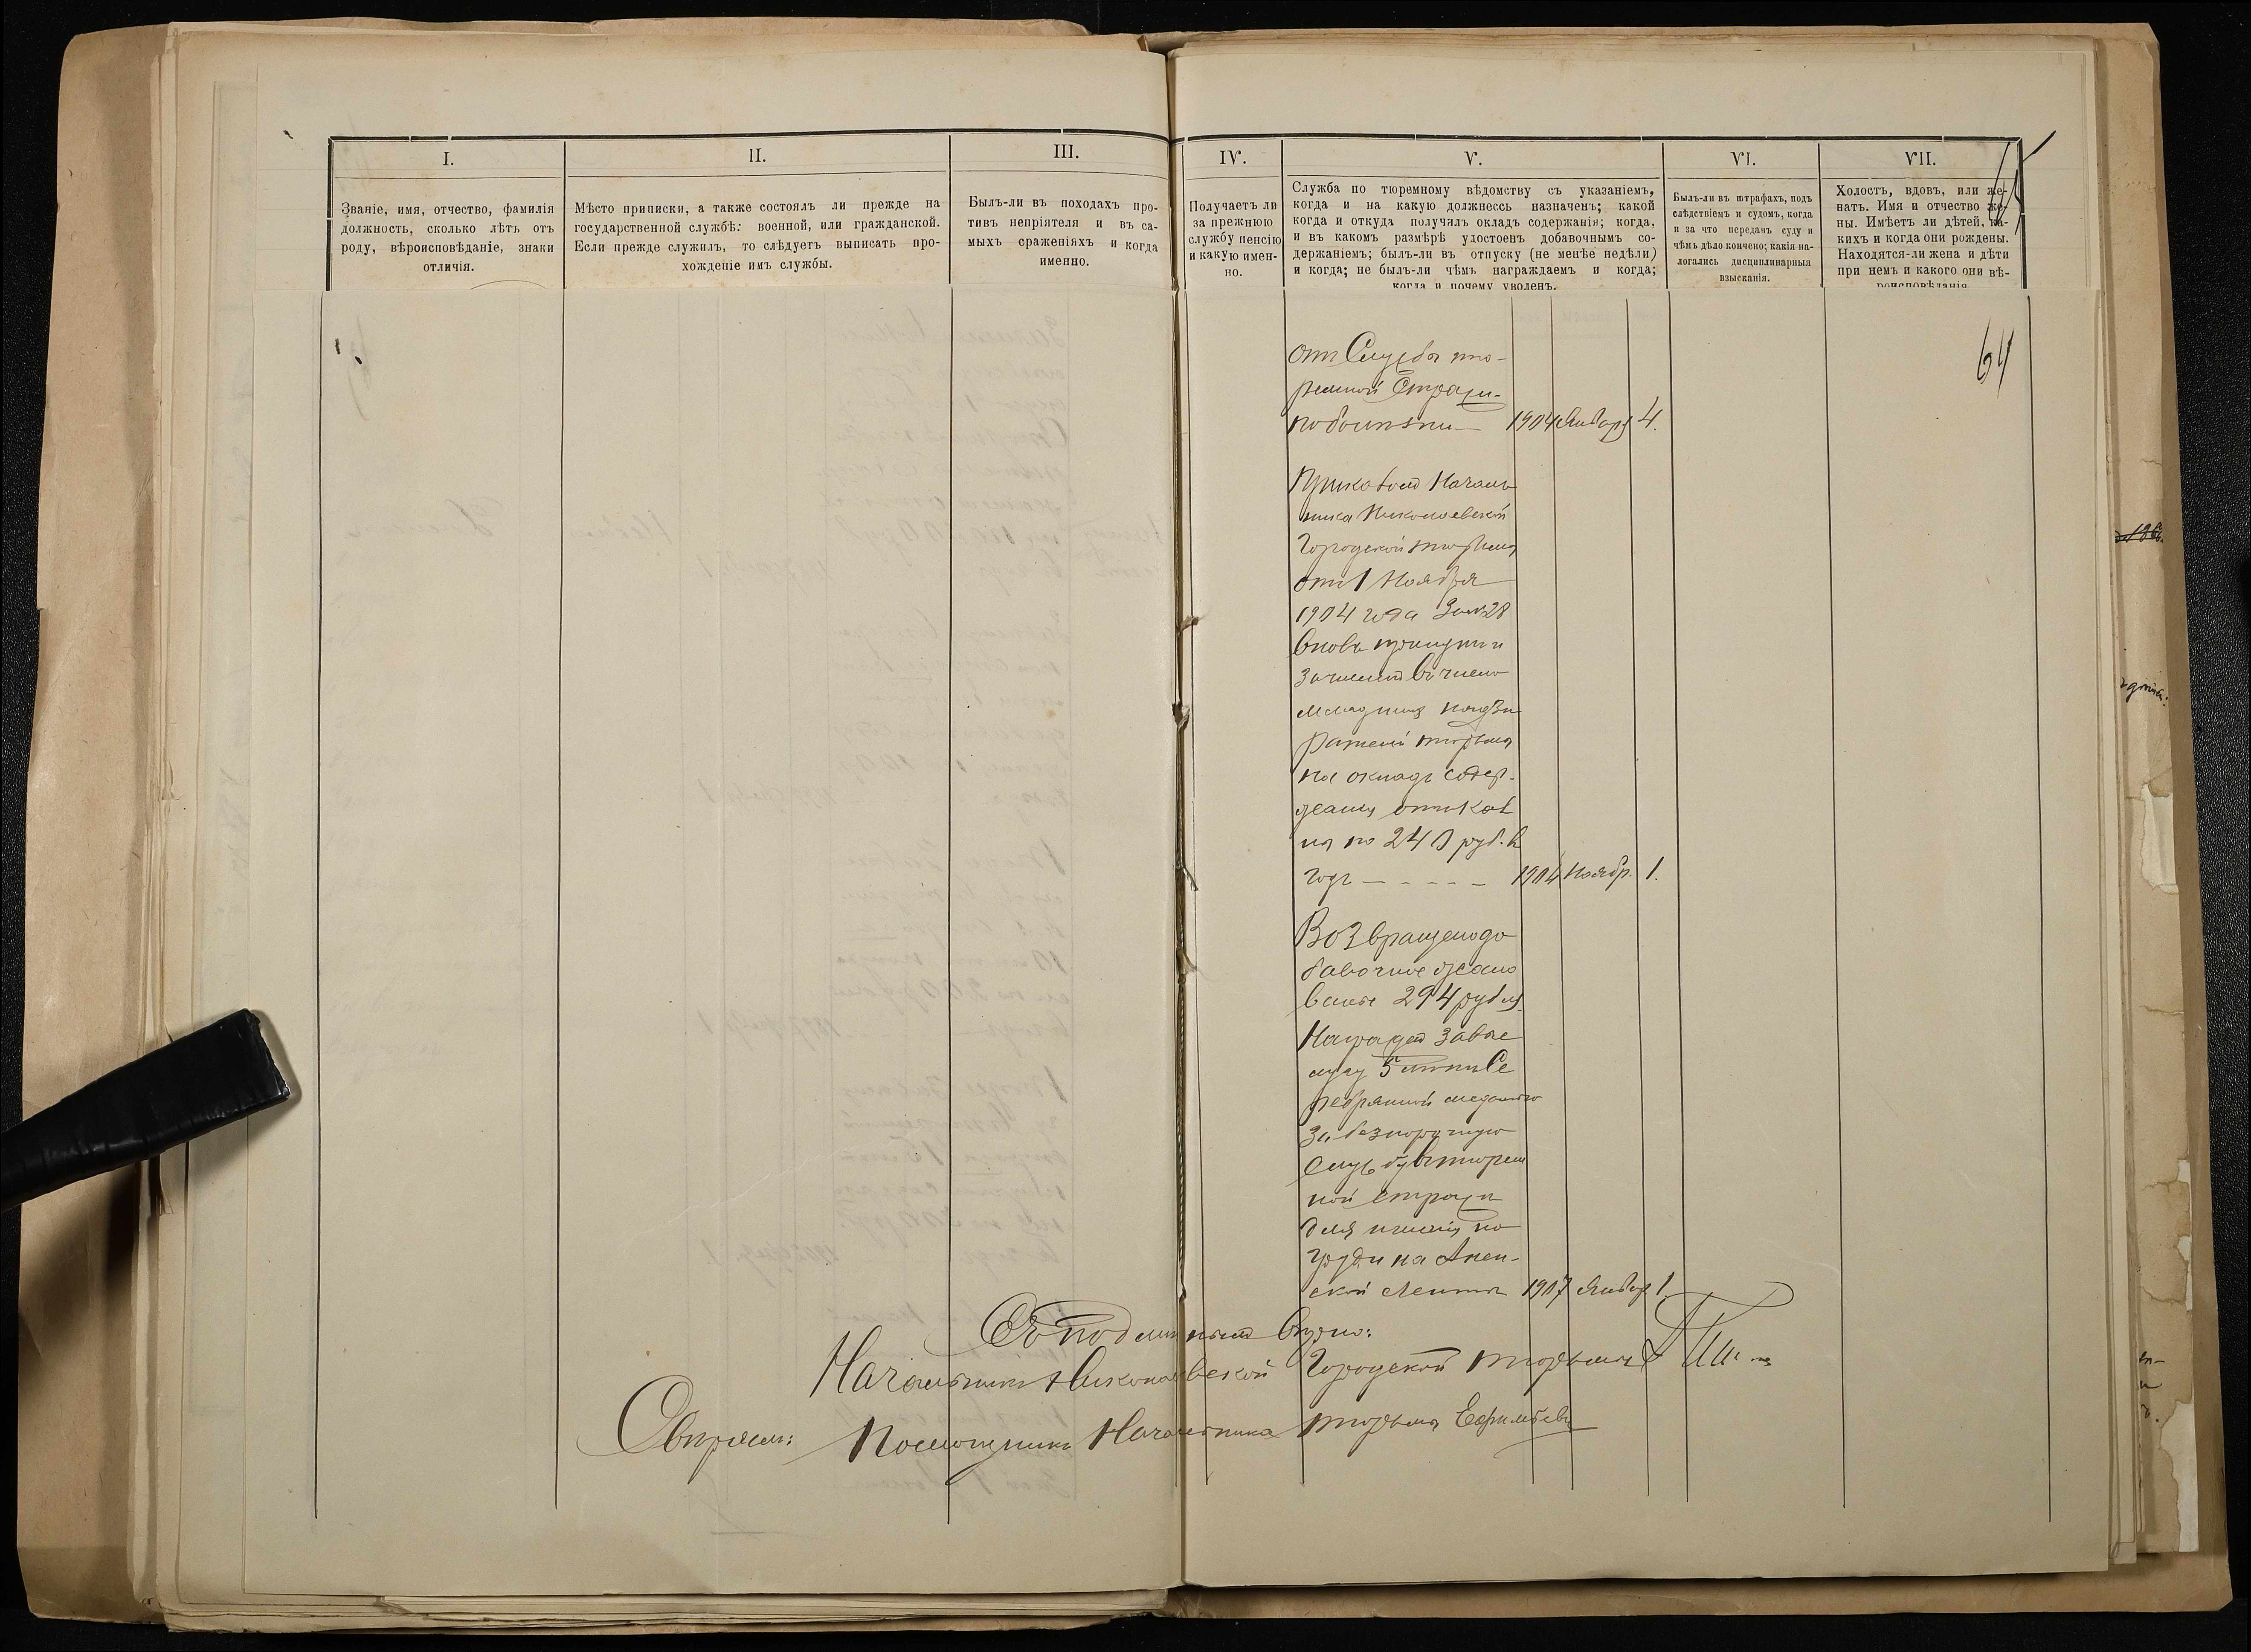 I.
Званіе, имя, отчество, фамилія
должность, сколько лѣтъ отъ
роду, вѣроисповѣданіе, знаки
отличія.
II.
Мѣсто приписки, а также состоялъ ли прежде на
государственной службѣ: военной, или гражданской.
Если прежде служилъ, то слѣдуетъ выписать про-
хожденіе имъ службы.
III.
Былъ-ли въ походахъ про-
тивъ непріятеля и въ са-
мыхъ сраженіяхъ и когда
именно.
IV.
Получаетъ ли
за прежнюю
службу пенсію
и какую имен-
но.
V.
Служба по тюремному вѣдомству съ указаніемъ,
когда и на какую должнессь назначенъ; какой
когда и откуда получалъ окладъ содержанія; когда,
и въ какомъ размѣрѣ удостоенъ добавочнымъ со-
держаніемъ; былъ-ли въ отпуску (не менѣе недѣли)
и когда; не былъ-ли чѣмъ награждаемъ и когда;
когда и почему уволенъ.
VI.
Былъ-ли въ штрафахъ, подъ
слѣдствіемъ и судомъ, когда
и за что переданъ суду и
чѣмъ дѣло кончено; какія на-
логались дисциплинарныя
взысканія.
VII.
Холостъ, вдовъ, или же-
натъ. Имя и отчество же-
ны. Имѣетъ ли дѣтей, ка-
кихъ и когда они рождены.
Находятся-ли жена и дѣти
при немъ и какого они вѣ-
роисповѣданія
64
отъ Службы тю-
ремной Стражи
по болѣзни 1904 Январ 4.
Приказомъ Началь
ника Николаевской
Городской тюрьмы
отъ 1 Ноября
1904 года За № 28
вновь
зачисленъ въ число
младшихъ надзи
рателей тюрьмы
на окладъ содер-
жанія отъ каз
ны по 240 руб. въ
годъ 1904 Ноябр. 1.
Возвращено до
бавочное жало
ванье 294 рубля
Награжденъ За вые
лугу 5 лѣтъ Се
ребрянной медалью
за безпорочную
Службу въ тюрем
ной Стражи
для ношенія на
груди на Анен-
ской Лентѣ 1907 Январ 1.
Съ подлиннымъ вѣрно:
Начальникъ Николаевской Городской тюрьмы
Свѣрялъ: Помощникъ Начальника тюрьмы